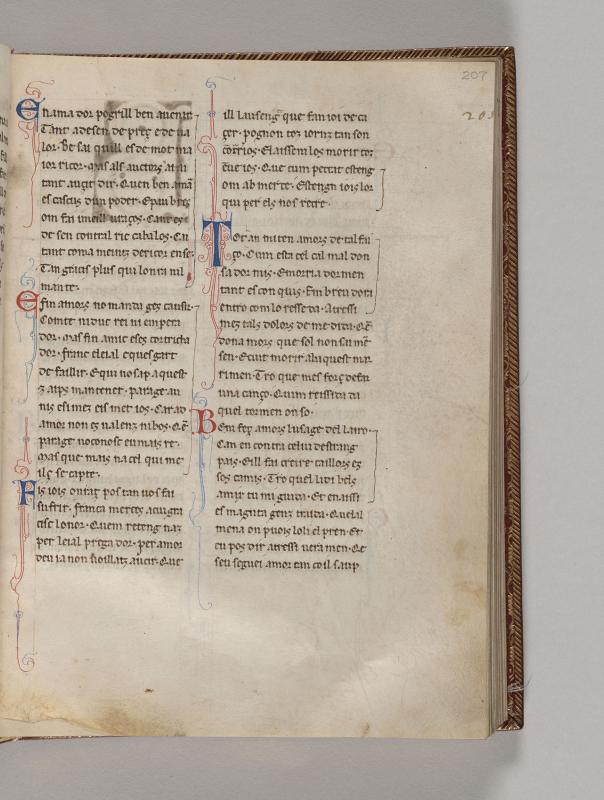 207
205
Enama dor pogrill ben auenir
Tant adesen de preç e de ua
lor. Be sai quill es de mot ma
ior ricor. mas als auctors ai ui
tant augit dir. Quen ben amã
es cascus dun poder. Epau
om fai
de sen contral ric cabalos. Ca
tant coma meinz dericor
Tan gracis plus qui lonra nil
mante.
E fin amors no manda ges causir
Comte ni duc rei ni empera
dor. mas fin amic eses cor tricha
dor. franc eleial eques gart
de faillir. Equi no sap aquest
z aips mantener. parage au
nis esi mez eis met ios. Car ad
amor non es ualenz ni bos. Qe
parage noconosc eu mais re.
mas que mais na cel qui me
ilz se capte.
Eis iois oniaz pos tan uos fai
sufrir. franca merces auinra
cisc lonor. Quem reteng naz
per leial prega dor. per amor
deu ia non uoillatz aucir. Que
ill lauseng que fan ioi deca
çer. pognon toz iornz tan son
coitios. Elaissem los morir toz
enueios. Que cum peccat esteng
om ab merce. Estengn iois lor
qui per els nos recre.
Tot an mi ten amors de tal fai
ço. Cum esta cel cui mal don
sa dor mis. Emorria dormen
tant es con quis. Em breu dora
entro com lo resseda. Atressi
mes tals dolors de me dita. Qe
dona mors que sol non sai me
sen. Ecuit morir ab aquest ma
rimen. Tro que mes forç defar
una canço. Quim reissida da
quel tormen on so.
Bem feç amors lusage del lairo.
Can en contra celui destrang
pais. Eill fai creire caillors es
sos camis. Tro quel lidi bels
amic tu mi guida. Et enaissi
es magnta genz traida. Quelal
mena on puois loli el pren. Et
eu pos dir atressi uera men. Qe
seu seguei amor tan co il saup